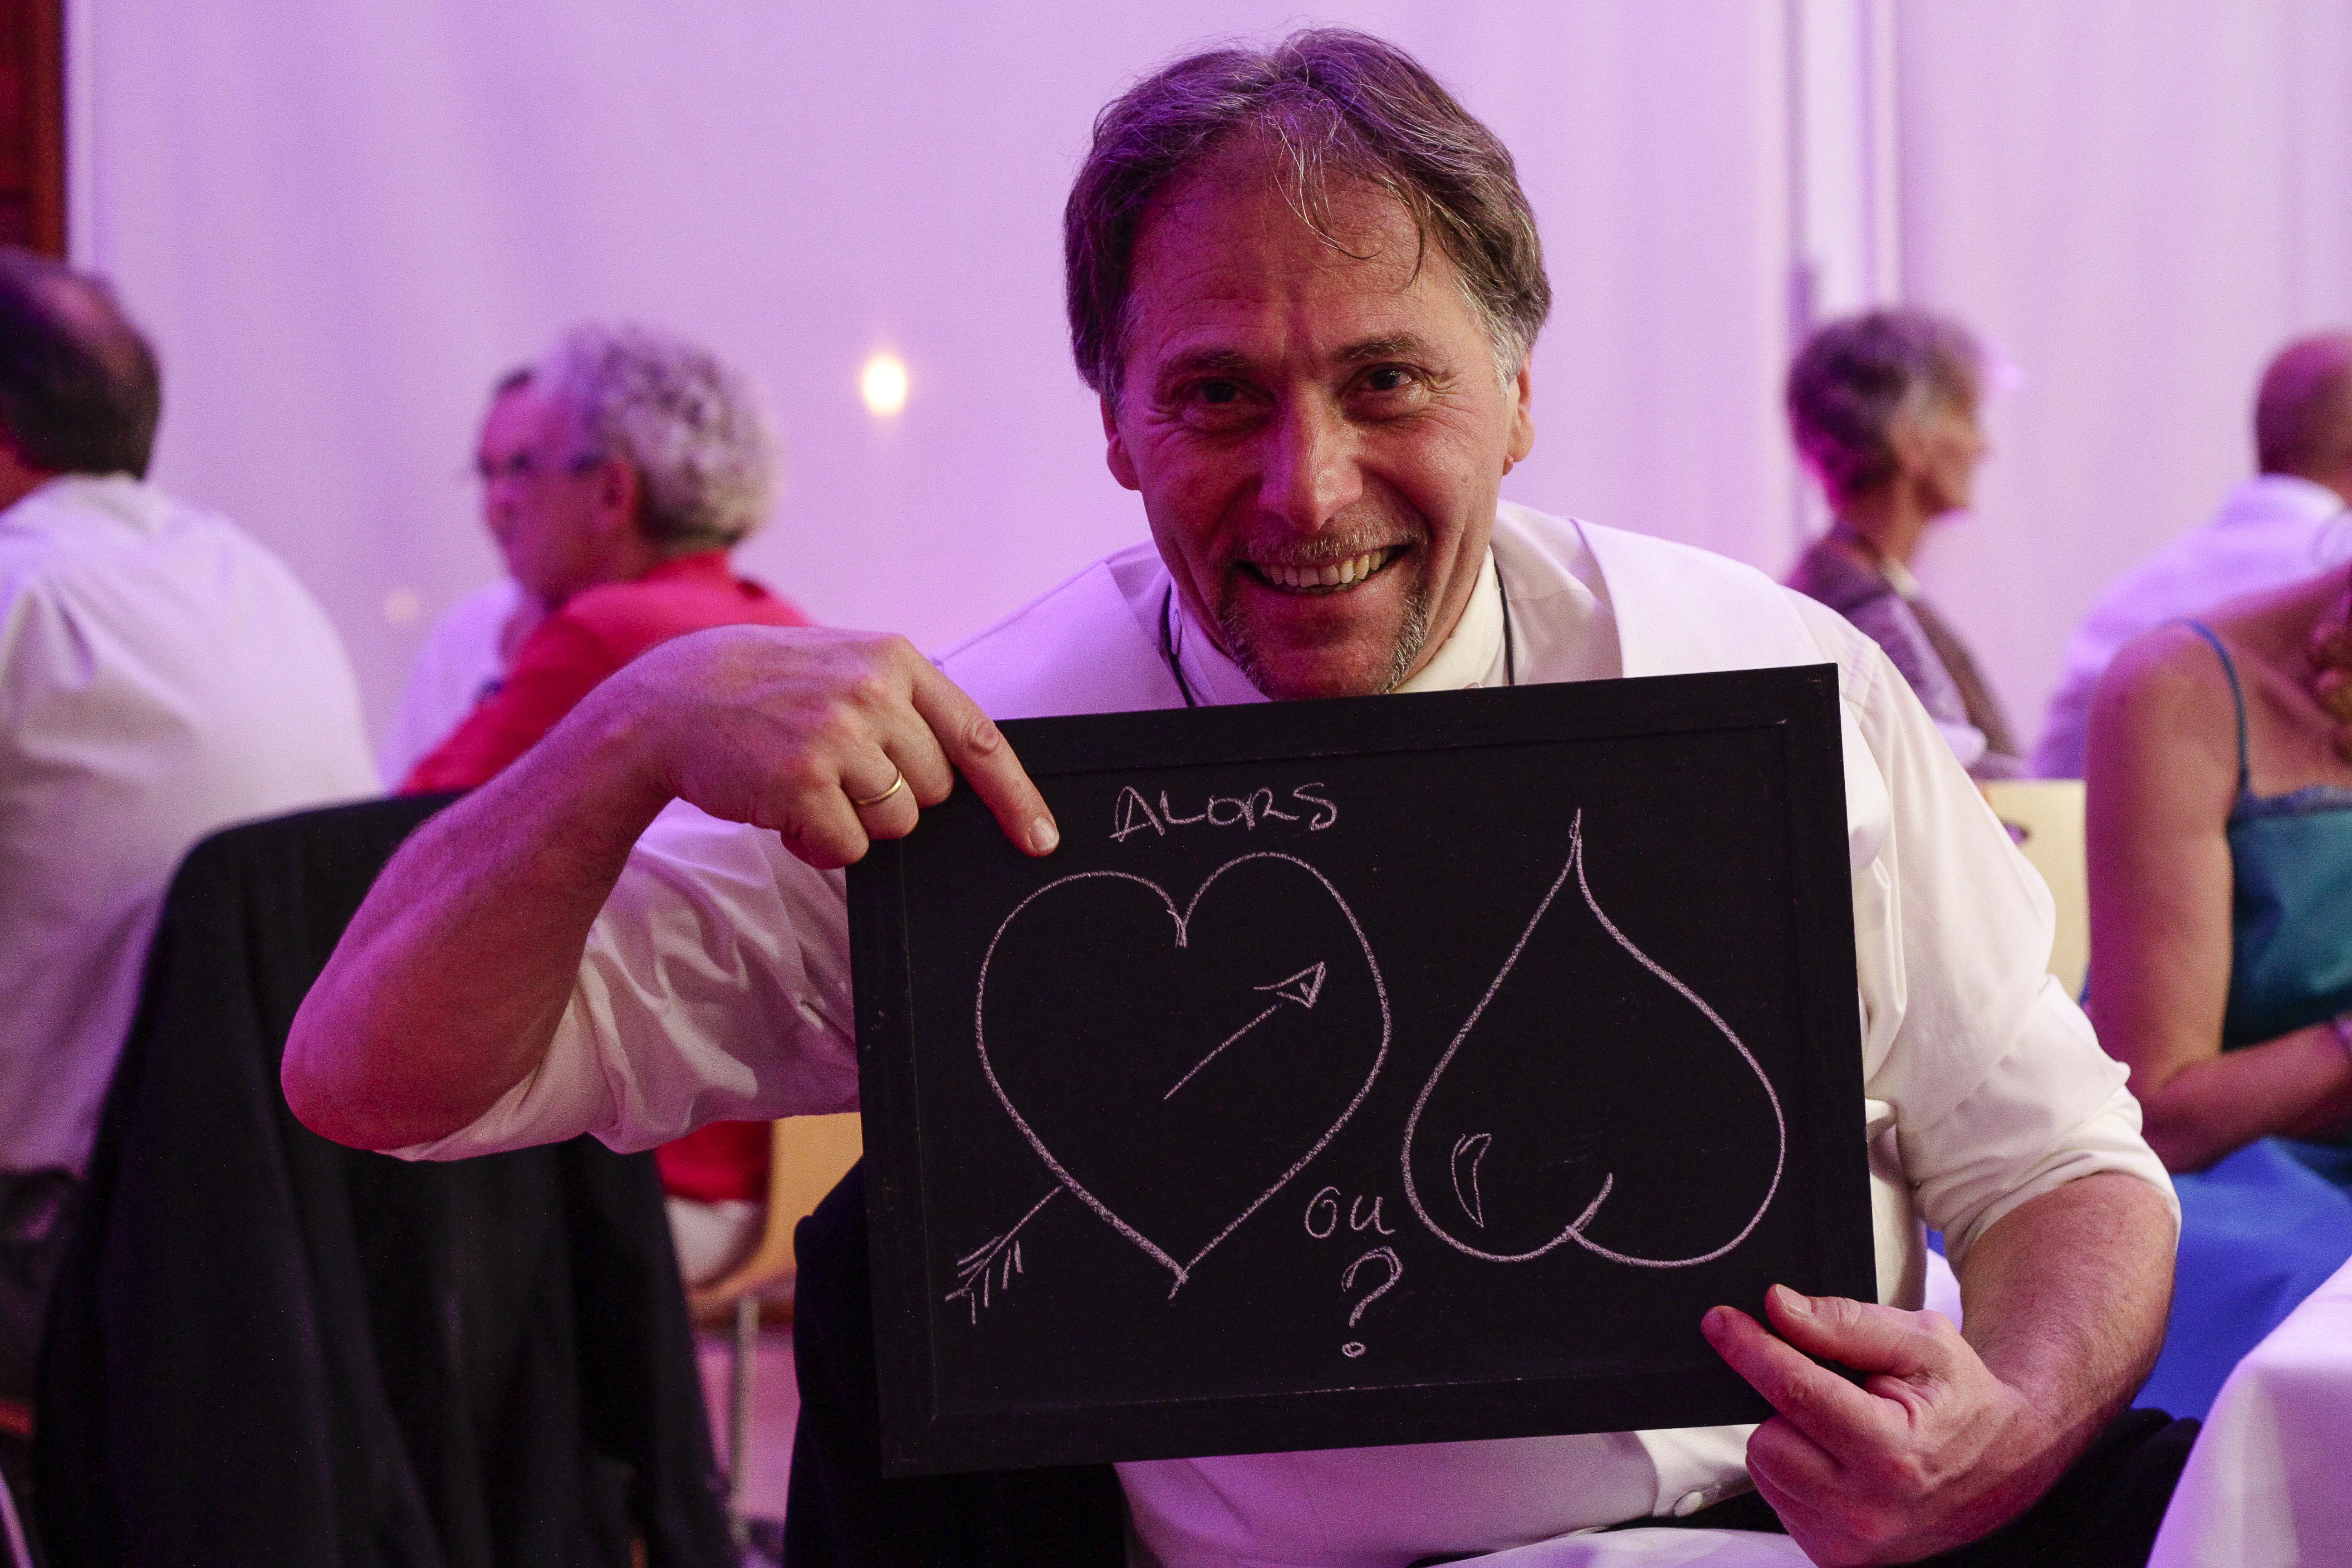 ALORS
ou
?